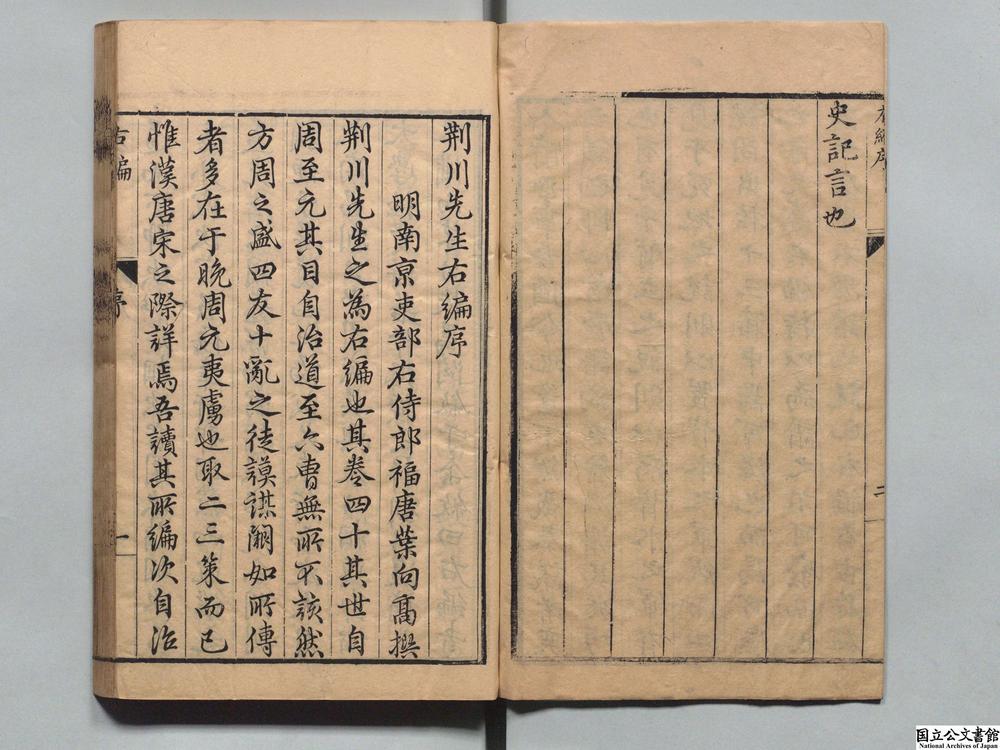 史記言也
荆川先生右編序
明南京吏部右侍郎福唐葉向髙撰
荆川先生之為右編也其卷四十其世自
周至元其目自治道至六曹無所不該然
方周之盛四友十亂之徒謨謀闕如所傳
者多在于晚周元夷虜也取二三策而已
惟漢唐宋之際詳焉吾讀其所編次自治
右編
序
一
二
国立公文書館
National Archives of Japan